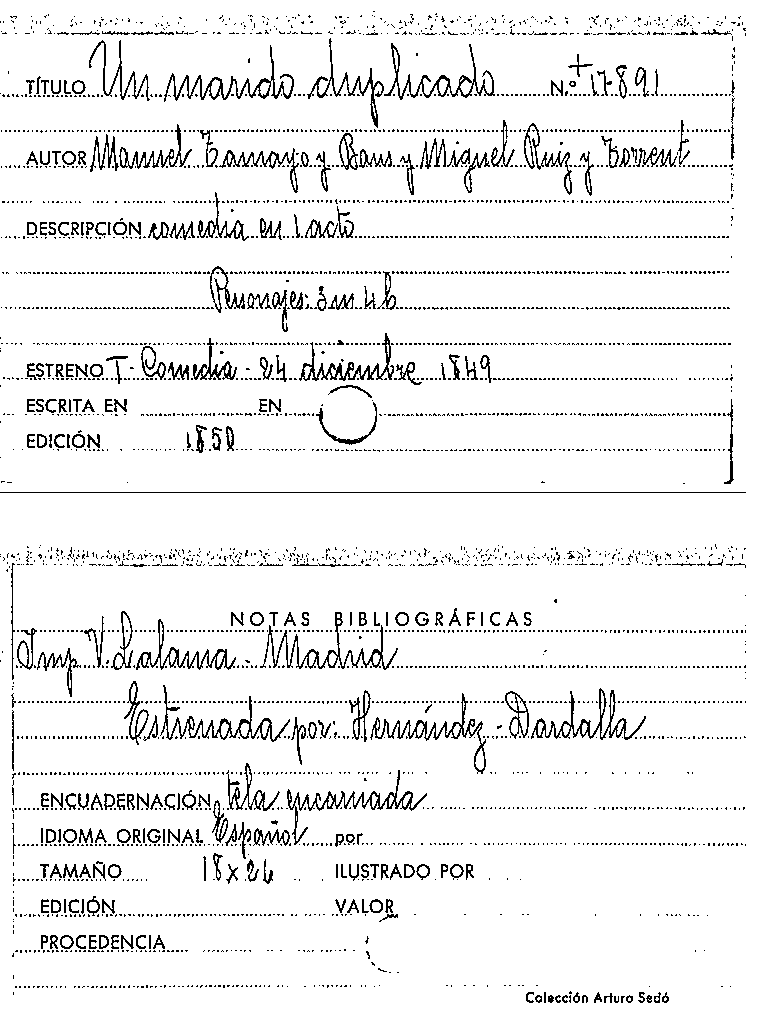 TÍTULO Un marido duplicado N.º + 17891
AUTOR Manuel Tamayo y Baus y Miguel Ruiz y Torrent
DESCRIPCIÓN comedia en 1 acto
Personajes: 3m 4h
ESTRENO T- Comedia - 24 diciembre 1849
ESCRITA EN EN
EDICIÓN 1850
NOTAS BIBLIOGRÁFICAS
Imp V. Lalama - Madrid
Estrenada por: Hernández - Dardalla
ENCUADERNACIÓN tela encarnada
IDIOMA ORIGINAL Español por
TAMAÑO 18x26 ILUSTRADO POR
EDICIÓN VALOR
PROCEDENCIA
Colección Arturo Sedó